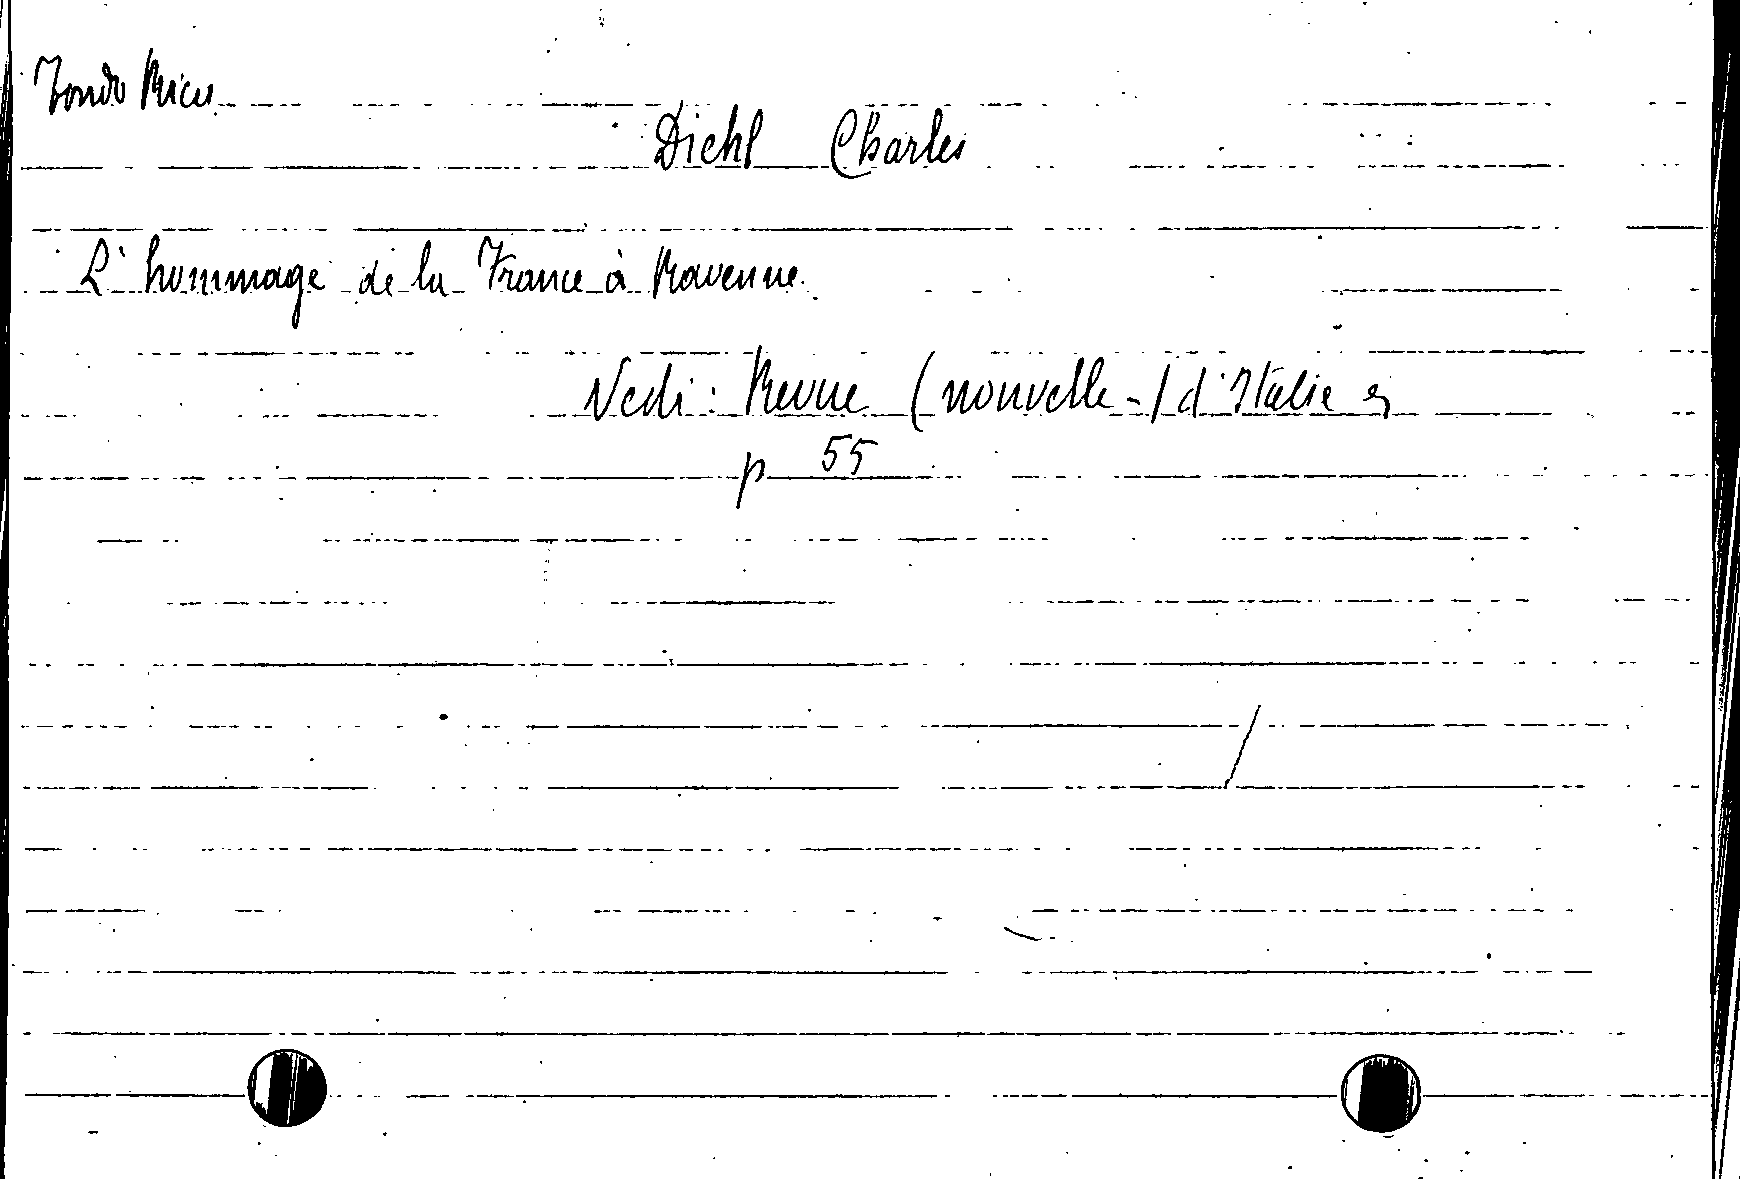 Fondo Ricci
Diehl Charles
L'hommage de la France à Ravenne.
Vedi: Revue (nouvelle-) d'Italie
p 55